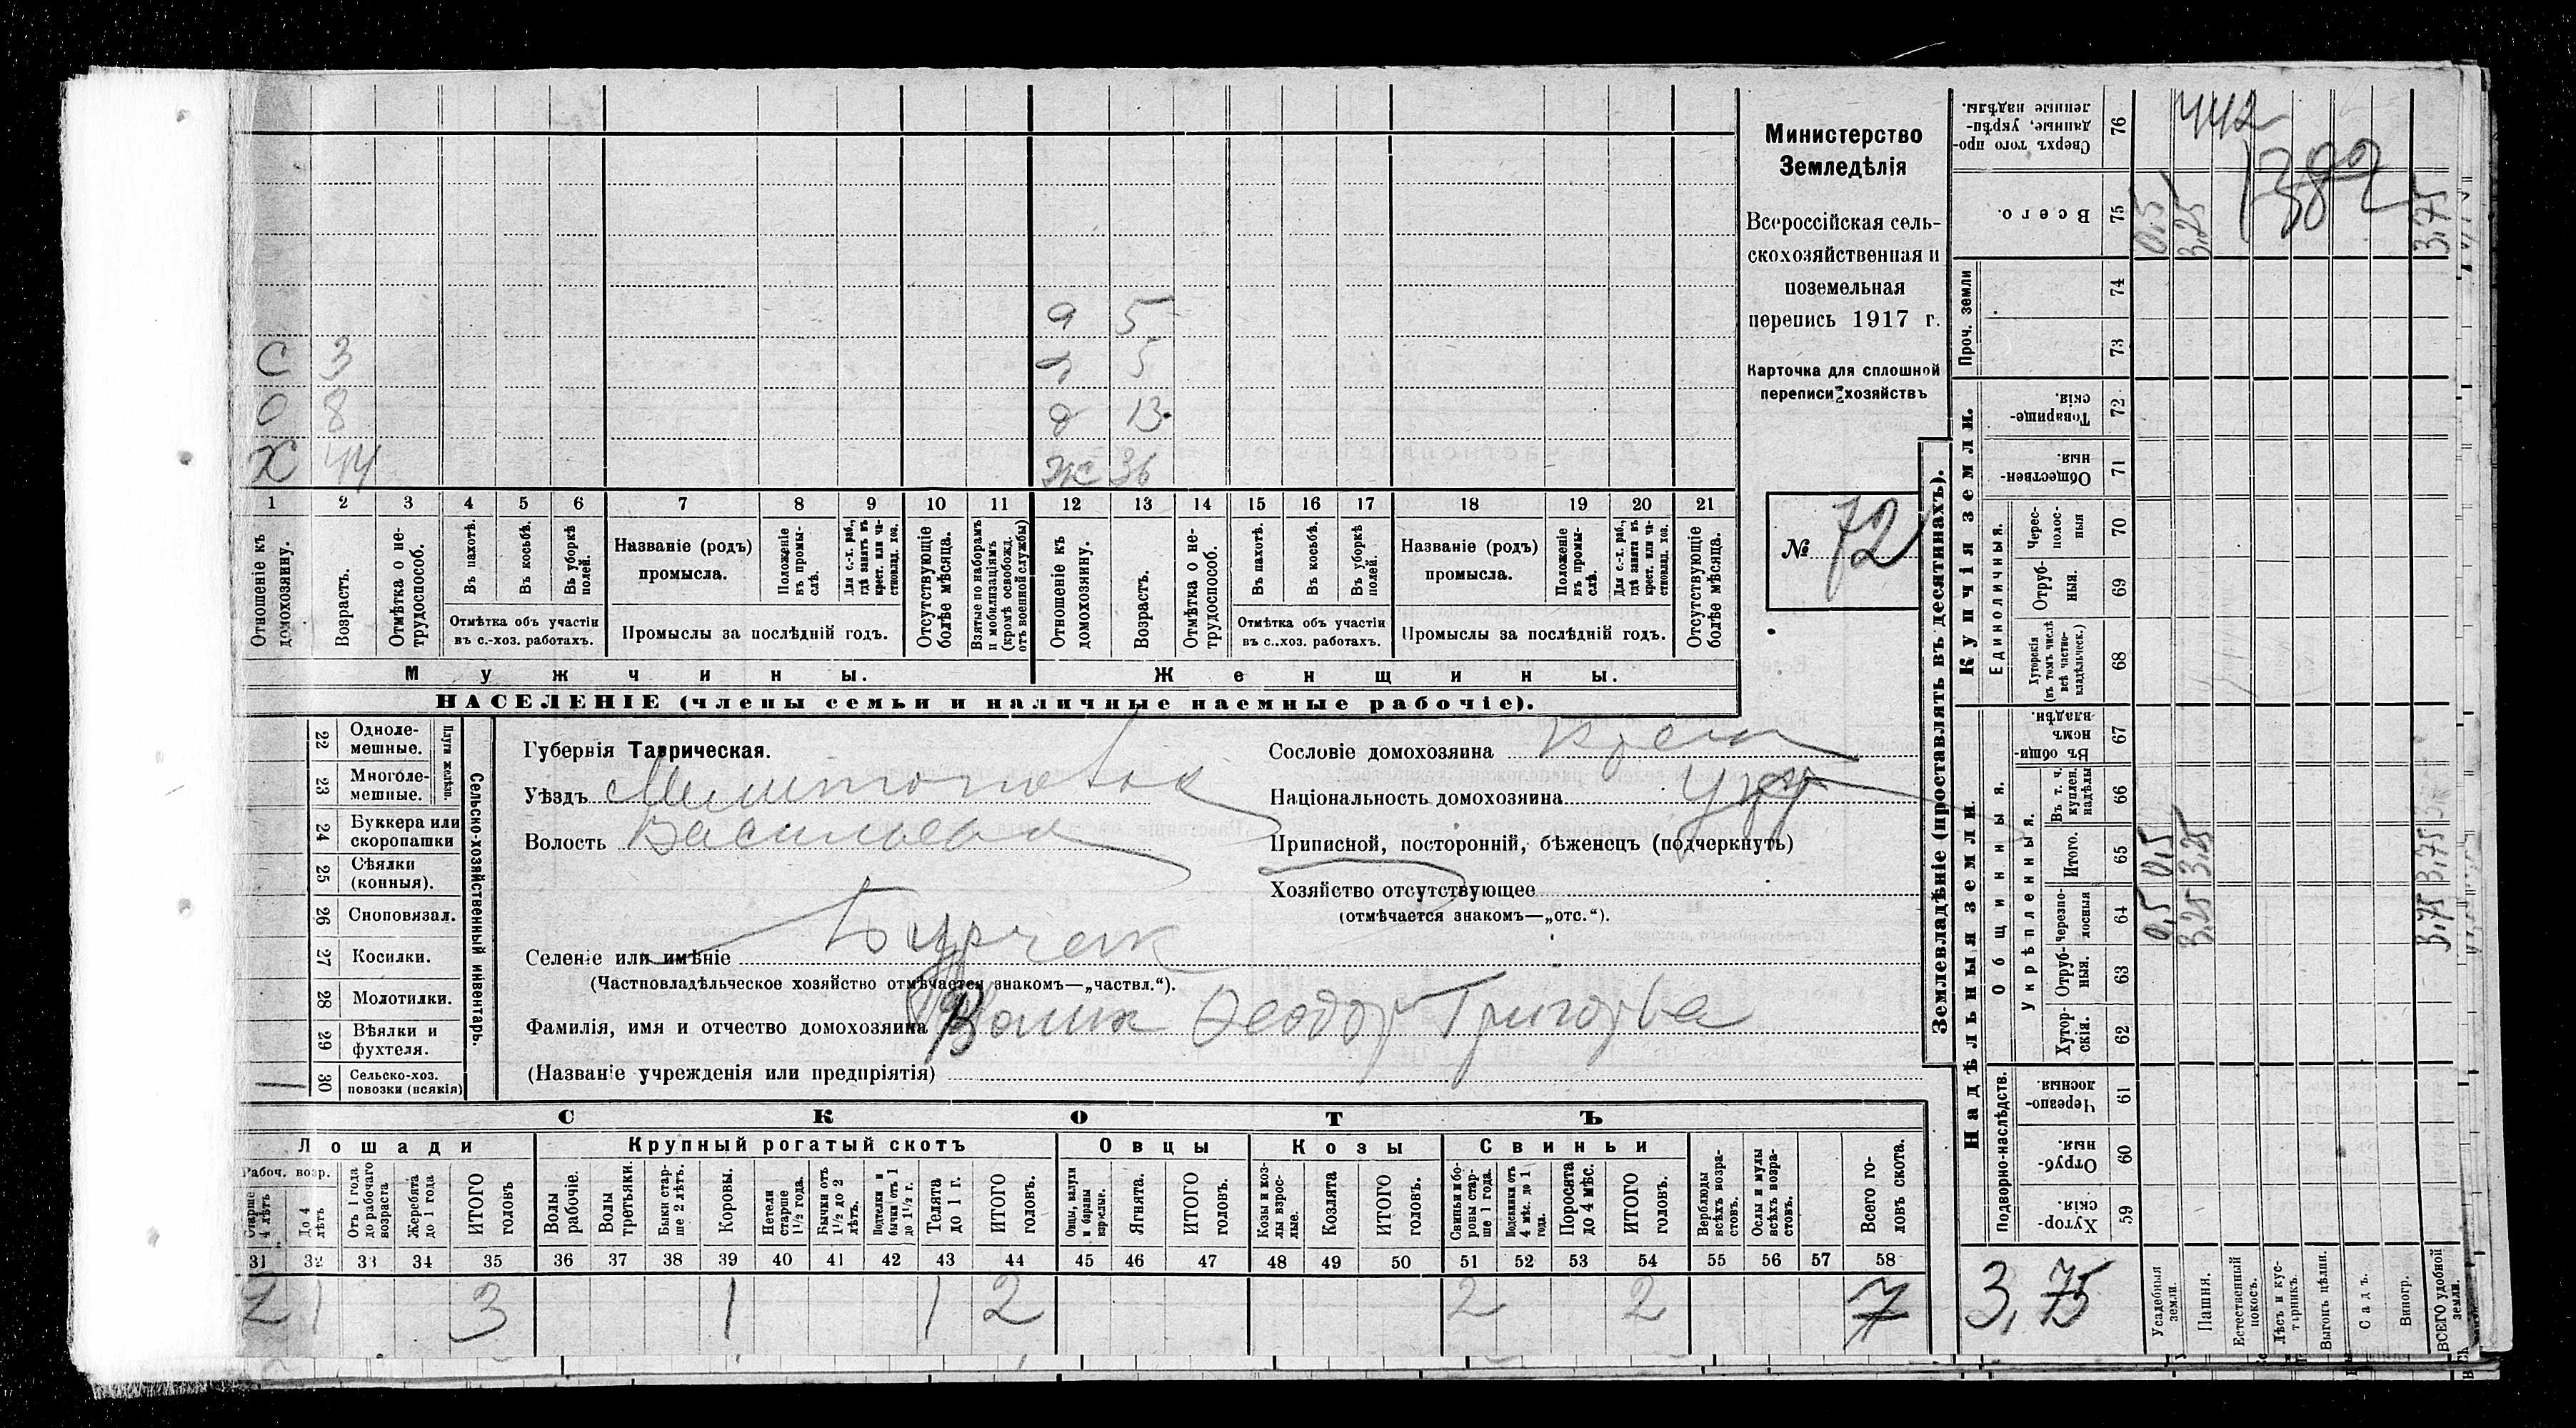 с 3
о 8
х 44
д 5
д 5
д 13
ж 36
1 2 3 4 5 6 7 8 9 10 11 12 13 14 15 16 17 18 19 20 21
Отношеніе къ домохозяину.
Возрастъ.
Отмѣтка о не-трудоспособ.
Въ пахотѣ.
Въ косьбѣ.
Въ уборкѣ полей.
Отмѣтка объ участіи
въ с.-хоз. работахъ.
Названіе (родъ)
промысла.
Положеніе въ промы-слѣ.
Для с.-х. раб., гдѣ занятъ въ крест. или ча-стновлад. хоз.
Промыслы за послѣдній годъ.
Отсутствующіе болѣе мѣсяца.
Взятые по наборамъ и мобилизаціямъ (кромѣ освобожд. отъ военной службы)
Отношеніе къ домохозяину.
Возрастъ.
Отмѣтка о не-трудоспособ.
Въ пахотѣ.
Въ косьбѣ.
Въ уборкѣ полей.
Отмѣтка объ участіи
въ с.-хоз. работахъ.
Названіе (родъ)
промысла.
Положеніе въ промы-слѣ.
Для с.-х. раб., гдѣ занята въ крест. или ча-стновлад. хоз.
Промыслы за послѣдній годъ.
Отсутствующіе болѣе мѣсяца.
Мужчины.
Женщины.
НАСЕЛЕНІЕ (члены семьи и наличные наемные рабочіе).
Министерство
Земледѣлія
Всероссійская сель-
скохозяйственная и
поземельная
перепись 1917 г.
Карточка для сплошной
переписи хозяйствъ
№ 72
22 Одноле-мешные.
23 Многоле-мешные.
Плуги желѣзн.
24 Буккера или скоропашки
25 Сѣялки (конныя).
26 Сноповязал.
27 Косилки.
28 Молотилки.
29 Вѣялки и фухтеля.
30 Сельско-хоз. повозки (всякія)
1
Сельско-хозяйственный инвентарь.
Губернія Таврическая.
Уѣздъ Мелитопольск
Волость Васильевск
Селеніе или имѣніе Бурчак
(Частновладѣльческое хозяйство отмѣчается знакомъ—„частвл.“).
Фамилія, имя и отчество домохозяина Волик Феодор Григорьев
(Названіе учрежденія или предпріятія)
Сословіе домохозяина крест
Національность домохозяина укр
Приписной, посторонній, бѣженецъ (подчеркнуть)
Хозяйство отсутствующее
(отмѣчается знакомъ—„отс.“).
СКОТЪ
Лошади
Рабоч. возр.
Старше 4 лѣтъ
До 4 лѣтъ
Отъ 1 года до рабочаго возраста
Жеребята до 1 года
ИТОГО головъ
Крупный рогатый скотъ
Волы рабочіе.
Волы третьяки.
Быки стар-ше 2 лѣтъ.
Коровы.
Нетели старше 1½ года.
Бычки отъ 1½ до 2 лѣтъ.
Подтелки и бычки отъ 1 до 1½ г.
Телята до 1 г.
ИТОГО головъ.
Овцы
Овцы, валухи и бараны взрослые.
Ягнята.
ИТОГО головъ.
Козы
Козы и коз-лы взрос-лые.
Козлята
ИТОГО головъ.
Свиньи
Свиньи и бо-ровы стар-ше 1 года.
Подсвинки отъ 4 мѣс. до 1 года.
Поросята до 4 мѣс.
ИТОГО головъ.
Верблюды всѣхъ возра-стовъ.
Ослы и мулы всѣхъ возра-стовъ.
Всего го-ловъ скота.
31 32 33 34 35 36 37 38 39 40 41 42 43 44 45 46 47 48 49 50 51 52 53 54 55 56 57 58
2 1 3 1 1 2 2 2 7
Землевладѣніе (проставлять въ десятинахъ).
Купчія земли.
Надѣльныя земли.
Сверхъ того про-данные, укрѣп-ленные надѣлы. 76
442
1382
Всего. 75
0,5
3,25
3,75
Проч. земли
74
73
Товарище-скія. 72
Обществен-ныя. 71
Единоличныя.
Черес-полос-ныя 70
Отруб-ныя. 69
Хуторскія (въ томъ числѣ всѣ частно-владѣльческ.) 68
Общинныя.
Въ общин-номъ владѣн. 67
Укрѣпленныя.
Въ т. ч. куплен. надѣлы 66
Итого. 65
0,5
3,25
3,75
Черезпо-лосныя 64
0,5
3,25
3,75
Отруб-ныя. 63
Хутор-скія. 62
Подворно-наслѣдств.
Черезпо-лосныя 61
Отруб-ныя. 60
Хутор-скія. 59
3,75
Усадебныя земли.
Пашня.
Естественный покосъ.
Лѣсъ и кус-тарникъ.
Выгонъ цѣлин.
Садъ.
Виногр.
ВСЕГО удобной земли.